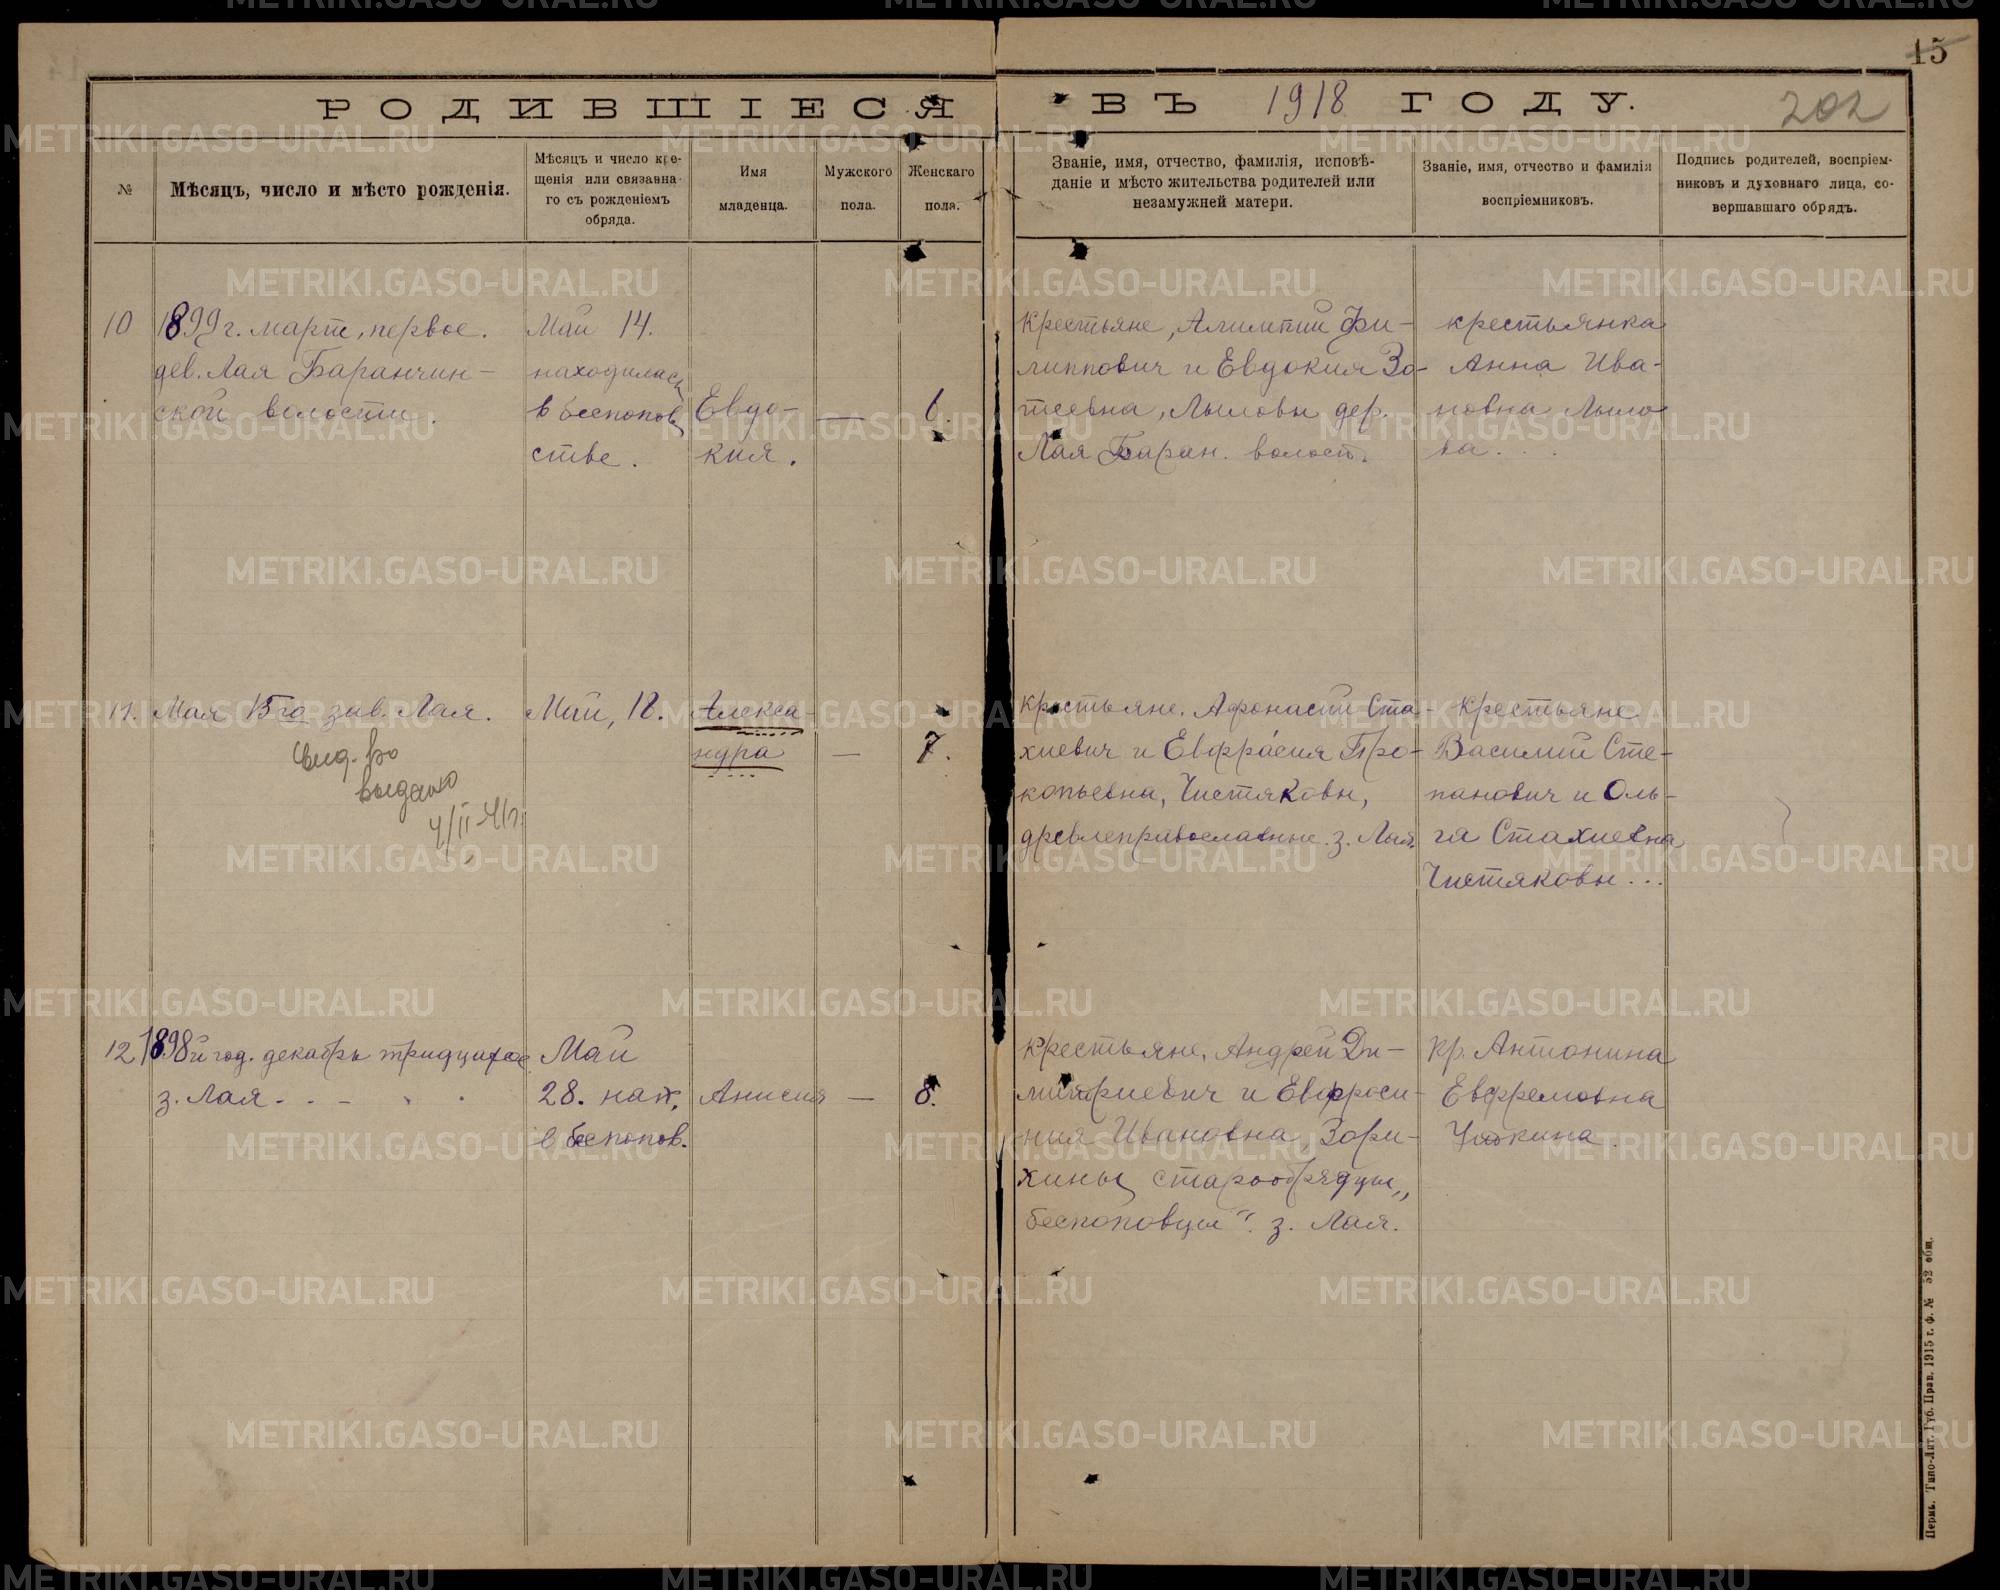 15
РОДИВШІЕСЯ ВЪ 1918 ГОДУ.
202
№
Мѣсяцъ, число и мѣсто рожденія.
Мѣсяцъ и число кре-
щенія или связанна-
го съ рожденіемъ
обряда.
Имя
младенца.
Мужского
пола.
Женскаго
пола.
Званіе, имя, отчество, фамилія, исповѣ-
даніе и мѣсто жительства родителей или
незамужней матери.
Званіе, имя, отчество и фамилія
воспріемниковъ.
Подпись родителей, воспріем-
никовъ и духовнаго лица, со-
вершавшаго обрядъ.
10
1899 г. март, первое.
дев. Лая Баранчин-
ской волости.
Май 14.
находилась
в беспопов
стве.
Евдо-
кия.
—
6.
Крестьяне, Алимпий Фи-
липпович и Евдокия Зо-
теевна, Лыловы дер.
Лая Баран. волост.
крестьянка
Анна Ива-
новна Лыло
ва.
11.
Мая 15го зав. Лая.
Свид-во
выдано
Май, 18.
Алекса-
ндра
—
7.
Крестьяне, Афонасий Ста-
хиевич и Евфрасия Про-
копьевна, Чистяковы,
древлеправославные. з. Лая.
Крестьяне
Василий Сте-
панович и Оль-
га Стахиевна
Чистяковы...
12
1898й год. декабрь тридцатое.
з. Лая
Май
28. нах.
в беспопов.
Анисия
—
8.
Крестьяне, Андрей Ди-
митриевич и Евфроси-
ния Ивановна, Зори-
хины старообрядцы „
беспоповцы“. з. Лая.
кр. Антонина
Евфремовна
Пермь. Типо-Лит. Губ. Прав. 1915 г. ф. № 52 общ.
METRIKI.GASO-URAL.RU